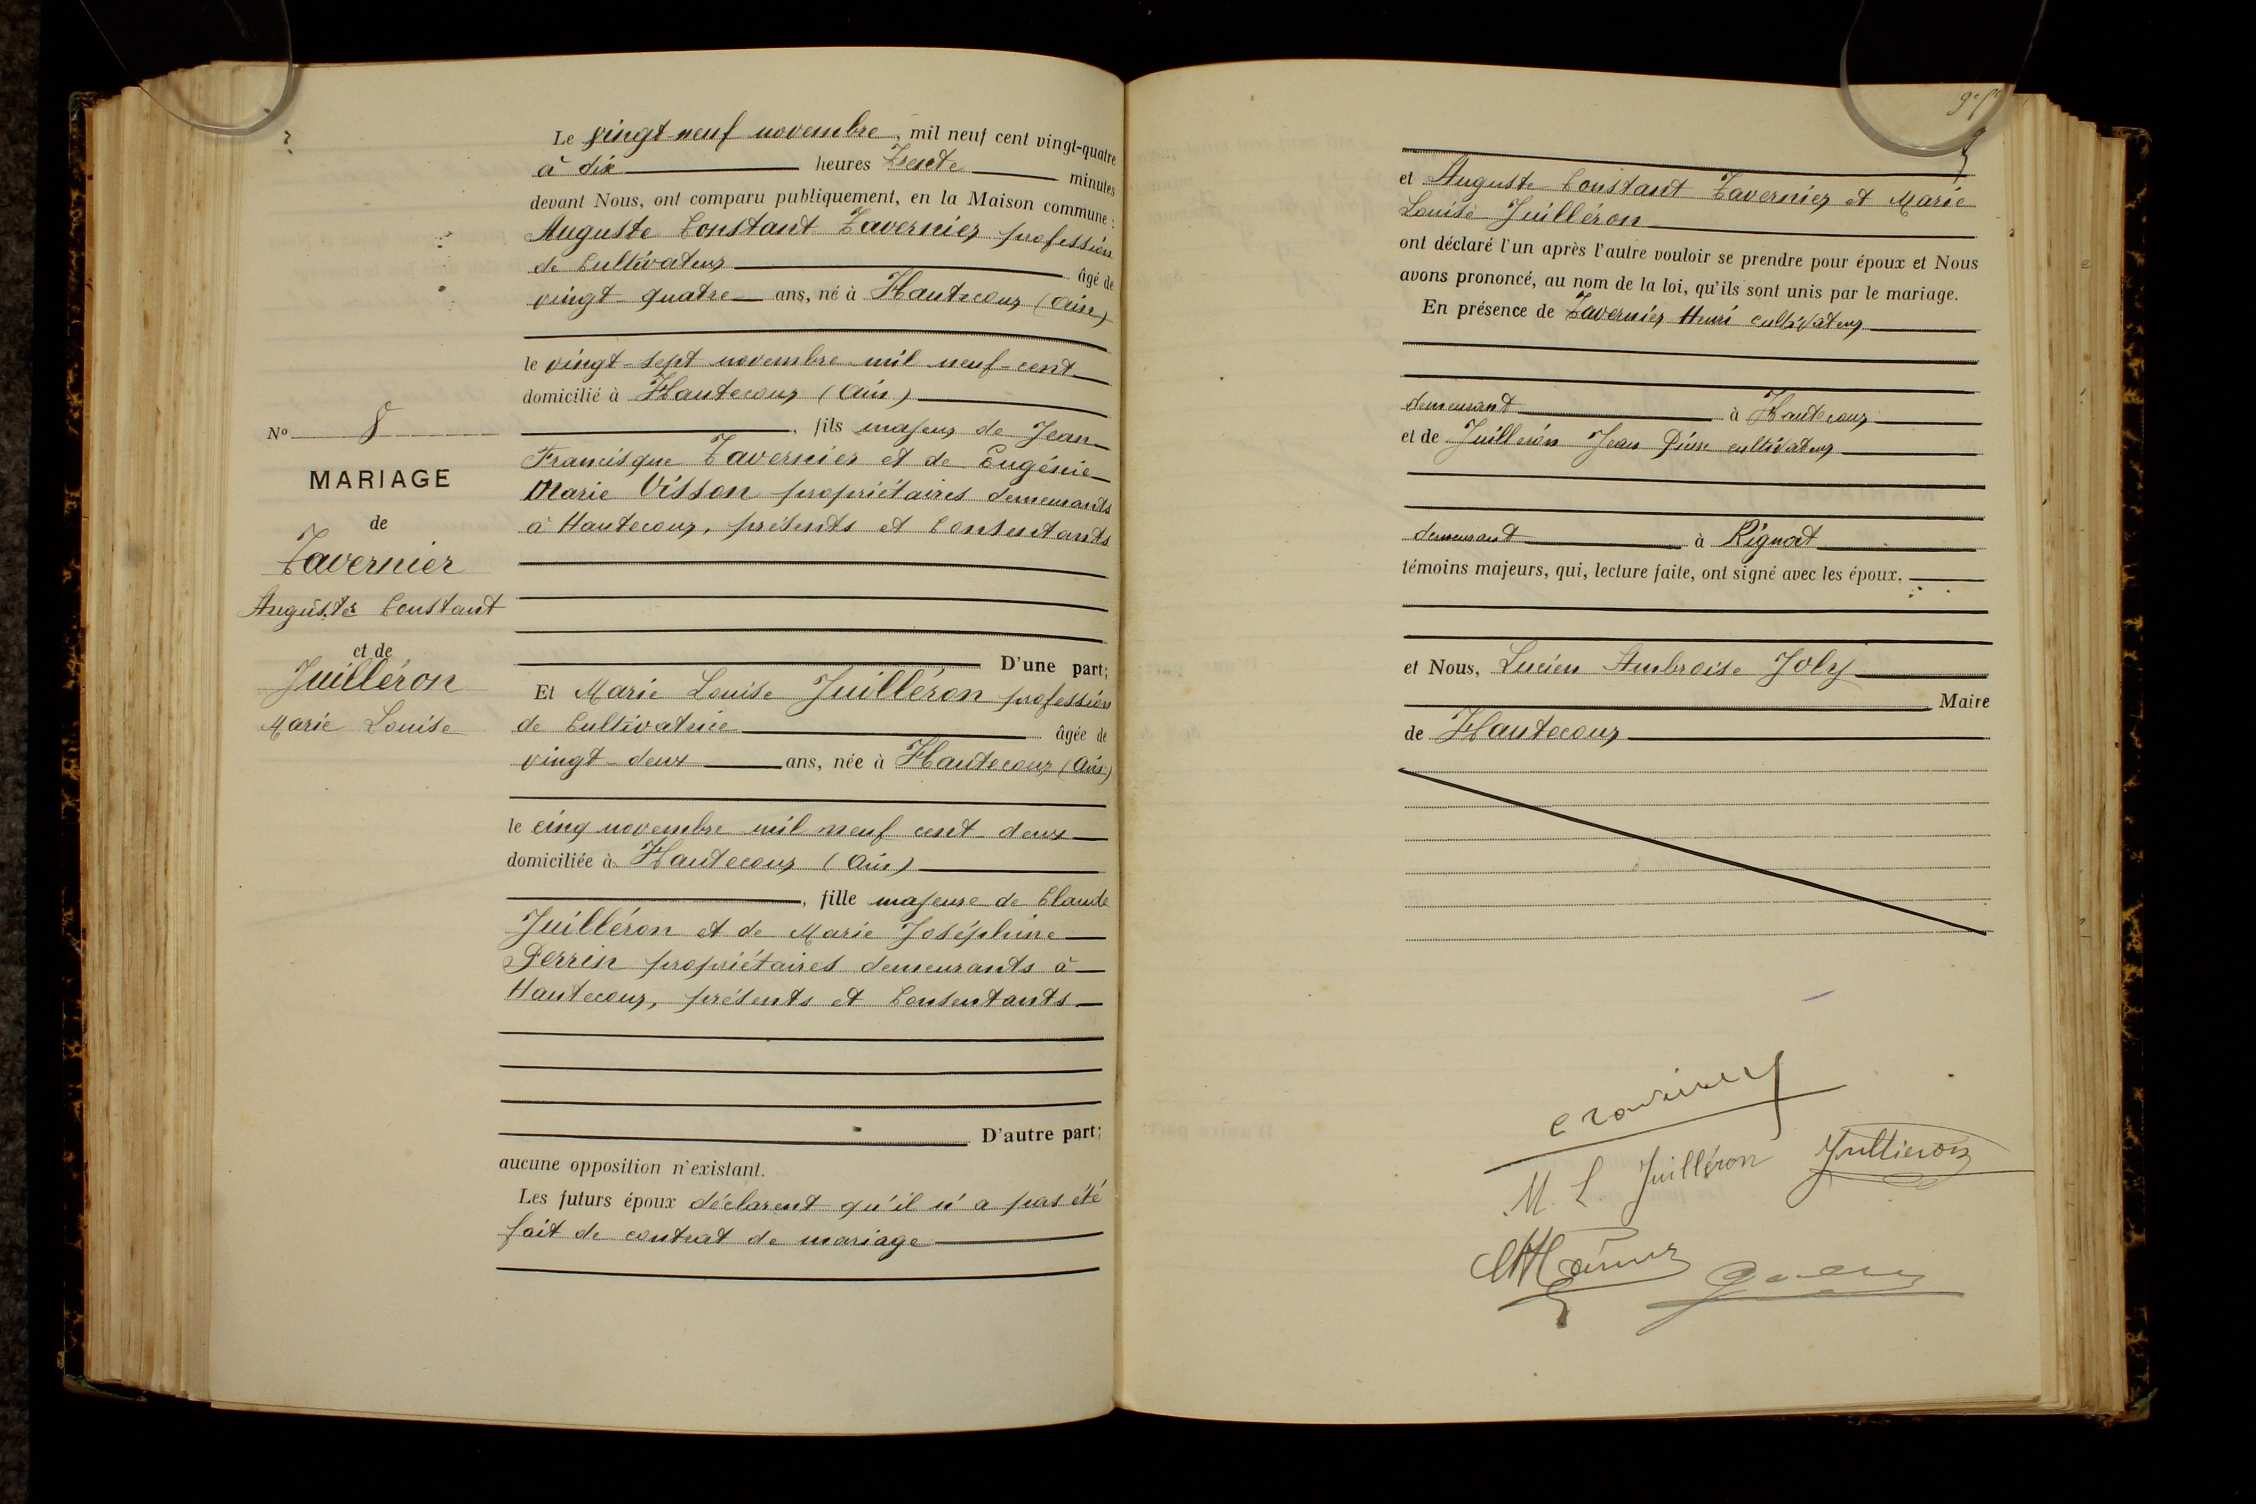 Le vingt-neuf novembre, mil neuf cent vingt-quatre
à dix heures trente minutes
devant Nous, ont comparu publiquement, en la Maison commune :
Auguste Constant Tavernier profession
de Cultivateur âgé de
vingt-quatre ans, né à Hautecour (Ain)
le vingt-sept novembre mil neuf-cent
domicilié à Hautecour (Ain)
, fils majeur de Jean
Francisque Tavernier et de Eugénie
Marie Visson propriétaires demeurants
à Hautecour, présents et Consentants
D'une part;
Et Marie Louise Juilléron profession
de Cultivatrice âgée de
vingt-deux ans, née à Hautecour (Ain)
le cinq novembre mil neuf cent deux
domiciliée à Hautecour (Ain)
, fille majeure de Claude
Juilléron et de Marie Joséphine
Perrin propriétaires demeurants à
Hautecour, présents et Consentants
D'autre part;
aucune opposition n'existant.
Les futurs époux déclarent qu'il n'a pas été
fait de contrat de mariage
No 8
MARIAGE
de
Tavernier
Auguste Constant
et de
Juilléron
Marie Louise
et Auguste Constant Tavernier et Marie
Louise Juilléron
ont déclaré l'un après l'autre vouloir se prendre pour époux et Nous
avons prononcé, au nom de la loi, qu'ils sont unis par le mariage.
En présence de Tavernier Henri cultivateur
demeurant à Hautecour
et de Juilleron Jean Pierre cultivateur
demeurant à Rignat
témoins majeurs, qui, lecture faite, ont signé avec les époux,
et Nous, Lucien Ambroise Joly
Maire
de Hautecour
M. L Juilléron